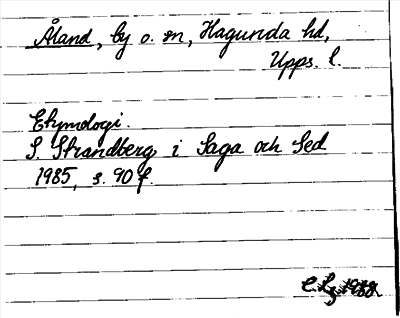 Åland, by o. sn, Hagunda hd,
Upps. l.
Etymologi.
S. Strandberg i Saga och Sed
1985, s. 90 f.
1988